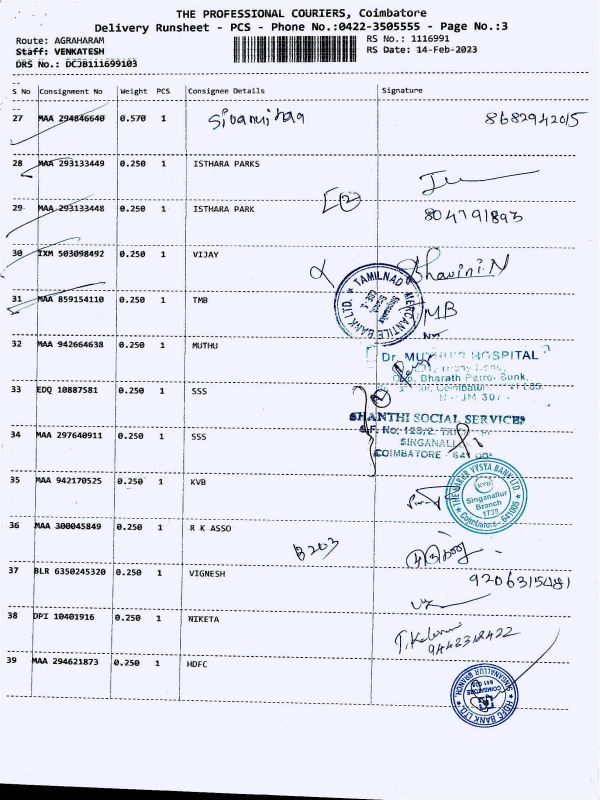 THE PROFESSIONAL COURIERS, Coimbatore
Delivery Runsheet - PCS - Phone No.:0422-3505555 - Page No.:3
Route: AGRAHARAM
RS No.: 1116991
Staff: VENKATESH
RS Date: 14-Feb-2023
DRS No.: DCJB111699103
S No Consignment No Weight PCS Consignee Details Signature
27 MAA 294846640 0.570 1 8682942015
28 MAA 293133449 0.250 1 ISTHARA PARKS
29 MAA 293133448 0.250 1 ISTHARA PARK 2 804791893
30 IXM 503098492 0.250 1 VIJAY Bhavini.N
TAMILNAD MERCANTILE BANK LTD.
31 MAA 859154110 0.250 1 TMB TMB
32 MAA 942664638 0.250 1 MUTHU
HOSPITAL
Bharath Petrol Bunk,
33 EDQ 10887581 0.250 1 SSS 2
SHANTHI SOCIAL SERVICES
34 MAA 297640911 0.250 1 SSS
COIMBATORE
35 MAA 942170525 0.250 1 KVB
THE KARUR VYSYA BANK LTD
KVB
Singanallur
Branch
1739
Coimbatore - 641005
36 MAA 300045849 0.250 1 R K ASSO
B203
37 BLR 6350245320 0.250 1 VIGNESH
38 DPI 10401916 0.250 1 NIKETA
39 MAA 294621873 0.250 1 HDFC
HDFC BANK LTD.
SINGANALLUR BRANCH,
COIMBATORE